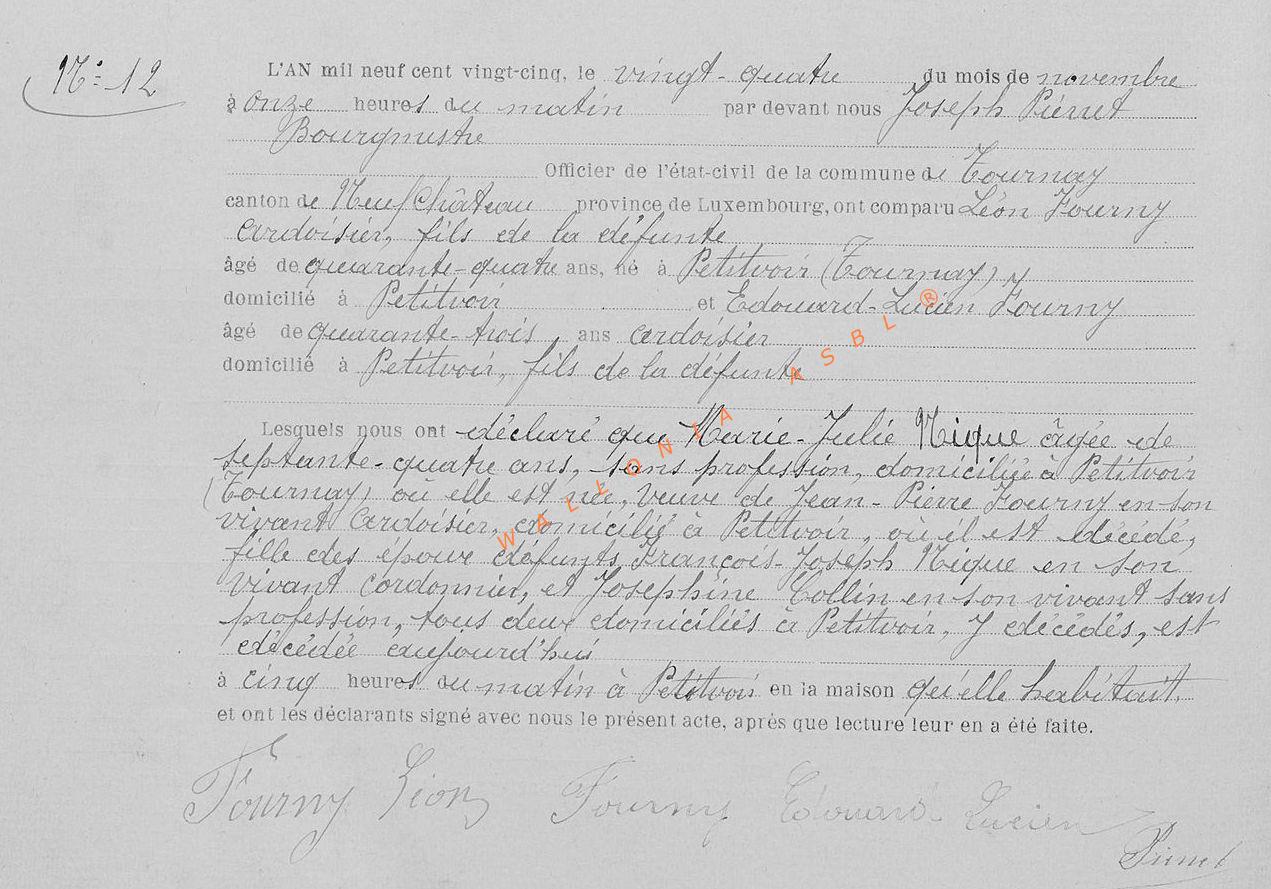 N° 12
L'AN mil neuf cent vingt-cinq, le vingt-quatre du mois de novembre
à onze heures du matin par devant nous Joseph Pierret
Bourgmestre
Officier de l'état-civil de la commune de Tournay
canton de Neufchâteau province de Luxembourg, ont comparu Léon Fourny
ardoisier, fils de la défunte
âgé de quarante-quatre ans, né à Petitvoir (Tournay) y
domicilié à Petitvoir et Edouard-Lucien Fourny
âgé de quarante-trois ans ardoisier
domicilié à Petitvoir, fils de la défunte
Lesquels nous ont déclaré que Marie-Julie Nique âgée de
septante-quatre ans, sans profession, domiciliée à Petitvoir
(Tournay) où elle est née, veuve de Jean-Pierre Fourny en son
vivant ardoisier, domicilié à Petitvoir, où il est décédé,
fille des époux défunts François-Joseph Nique en son
vivant cordonnier, et Josephine Collin en son vivant sans
profession, tous deux domiciliés à Petitvoir, y décédés, est
décédée aujourd'hui
à cinq heures du matin à Petitvoir en la maison qu'elle habitait.
et ont les déclarants signé avec nous le présent acte, après que lecture leur en a été faite.
Fourny Léon Fourny Edouard Lucien
Pierret
WALLONIA ASBL ®